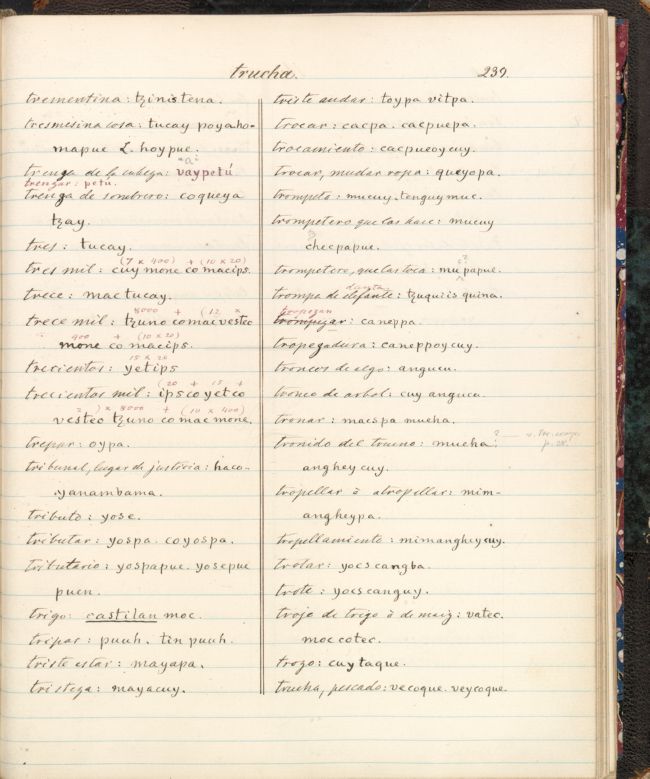 trucha.
239.
trementina: tzinistena.
tresmesina cosa: tucay poyaho-
mapue L. hoypue.
"a"
trenza de la cabeza: vaypetú
trenzar: petú.
trenza de sombrero: coqueya
tzay.
tres: tucay.
(7 x 400) + (10 x 20)
tres mil: cuy mone co macips.
trece: mactucay.
8000 + (12 x
trece mil: tzuno comacvesteo
400 + (10 x 20)
mone co macips.
15 x 20
trecientos: yetips
(20 + 15 +
trecientos mil: ipscoyetco
2) x 8000 + (10 x 400)
vesteo tzuno co mac mone.
trepar: oypa.
tribunal, lugar de justicia: haco-
yanambama.
tributo: yose.
tributar: yospa. coyospa.
tributario: yospapue. yosepue
puen.
trigo: castilan moc.
tripas: puuh. tin puuh.
triste estar: mayapa.
tristeza: mayacuy.
triste andar: toypa vitpa.
trocar: cacpa. cacpuepa.
trocamiento: cacpueoycuy.
trocar, mudar ropa: queyopa.
trompeta: mucuy. tenguymuc.
trompetero que las hace: mucuy
checpapue.
?
trompetero, que las toca: mupapue.
danta
trompa de elefante: tzuquiis quina.
tropezan
trompezar: caneppa.
tropezadura: caneppoycuy.
troncos de algo: angucu.
tronco de arbol: cuy anguca.
tronar: macspa mueha.
tronido del trueno: mueha ?
p. 28.
angheycuy.
tropellar ò atropellar: mim-
angheypa.
tropellamiento: mimangheycuy.
trotar: yocscangba.
trote: yocscanguy.
troje de trigo ò de maiz: vatec.
moccotec.
trozo: cuytaque.
trucha, pescado: vecoque. veycoque.